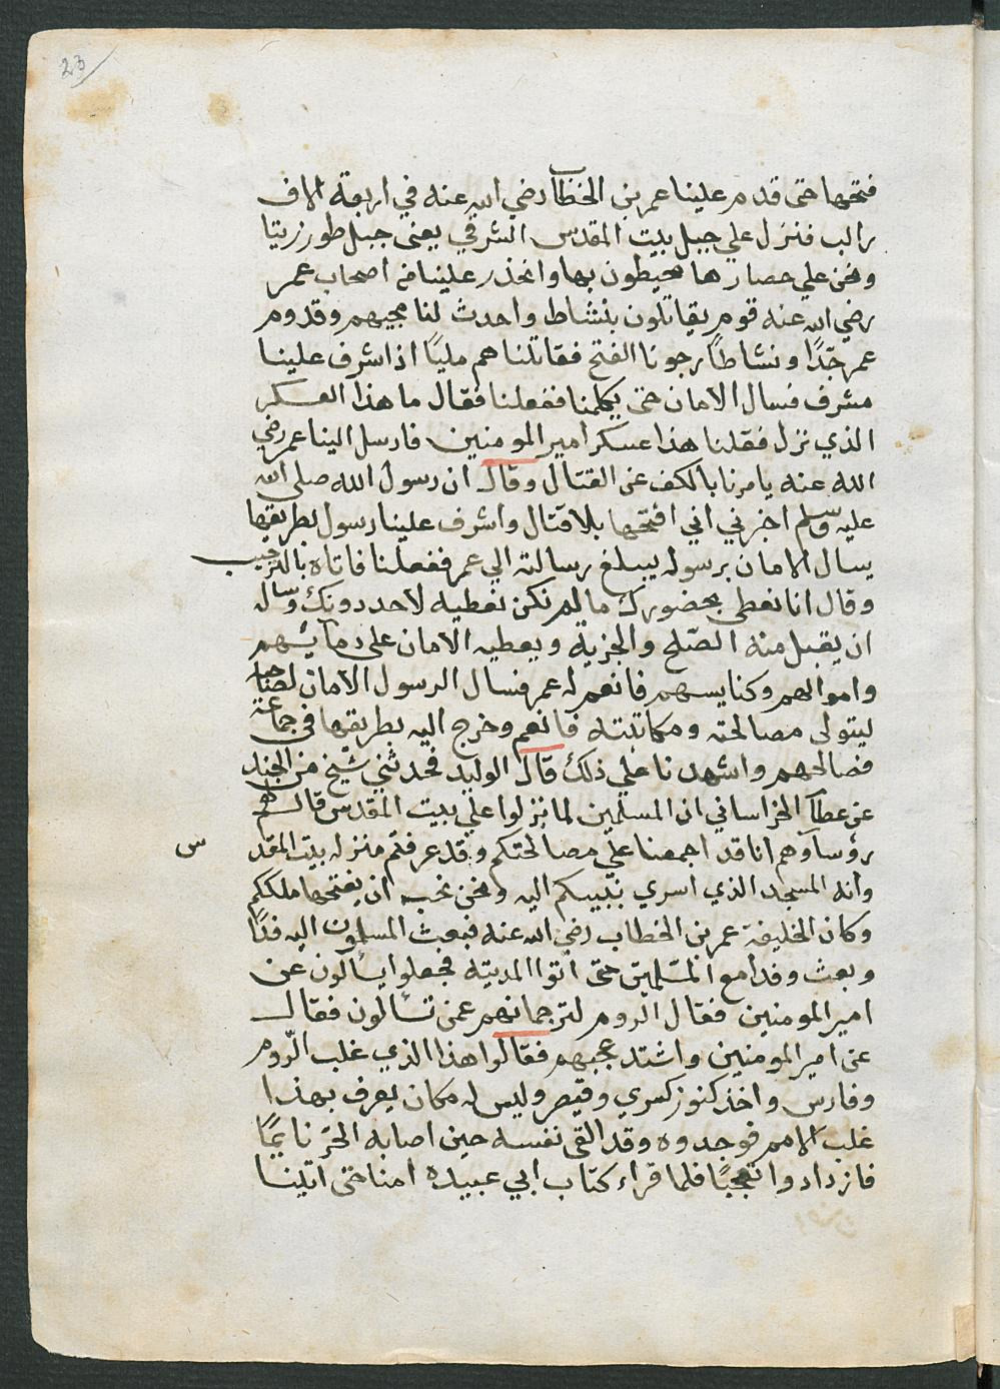 23
فتحها حتى قدم علينا عمر بن الخطاب رضي الله عنه في اربعة الاف
راكب فنزل علي جبل بيت المقدس الشرقي يعني جبل طور زيتا
ونحن علي حصارها محيطون بها وانحدر علينا من اصحاب عمر
رضي الله عنه قوم يقاتلون بنشاط واحدث لنا مجيهم وقدوم
عمر جدًا ونشاطًا رجونا الفتح فقاتلناهم مليًا اذ اشرف علينا
مشرف فسال الامان حتى يكلمنا ففعلنا فقال ما هذا العسكر
الذي نزل فقلنا هذا عسكر امير المومنين فارسل الينا عمر رضي
الله عنه يامرنا بالكف عن القتال وقال ان رسول الله صلى الله
عليه وسلم اخبرني اني افتحها بلا قتال واشرف علينا رسول بطريقها
يسال الامان برسوله يبلغ رسالته الي عمر ففعلنا فاتاه بالترحيب
وقال انا نعطي بحضورك ما لم نكن نعطيه لاحد دونك وساله
ان يقبل منه الصّلح والجزية ويعطيه الامان على دمايهم
واموالهم وكنايسهم فانعم له عمر فسال الرسول الامان لصاحبه
ليتولى مصالحته ومكاتبته فانعم وخرج اليه بطريقها في جماعة
فصالحهم واشهدنا علي ذلك قال الوليد فحدثني شيخ من الجند
عن عطآ الخراساني ان المسلمين لما نزلوا علي بيت المقدس قال لهم
رؤسآوهم انا قد اجمعنا علي مصالحتكم وقد عرفتم منزله بيت المقد س
وانه المسجد الذي اسري بنبيكم اليه ونحن نحب ان يفتحها ملككم
وكان الخليفة عمر بن الخطاب رضي الله عنه فبعث المسلمون اليه فدًا
وبعث وفدا مع المسلمين حتى اتوا المدينه فجعلوا يسالون عن
امير المومنين فقال الروم لترجمانهم عمن تسالون فقال
عن امير المومنين واشتد عجبهم فقالوا هذا الذي غلب الرّوم
وفارس واخذ كنوز كسري وقيصر وليس له مكان يعرف بهذا
غلب الامم فوجدوه وقد القى نفسه حين اصابه الحرّ نايمًا
فازدادوا تعجبًا فلما قراء كتاب ابي عبيده امنا حتى اتلينا